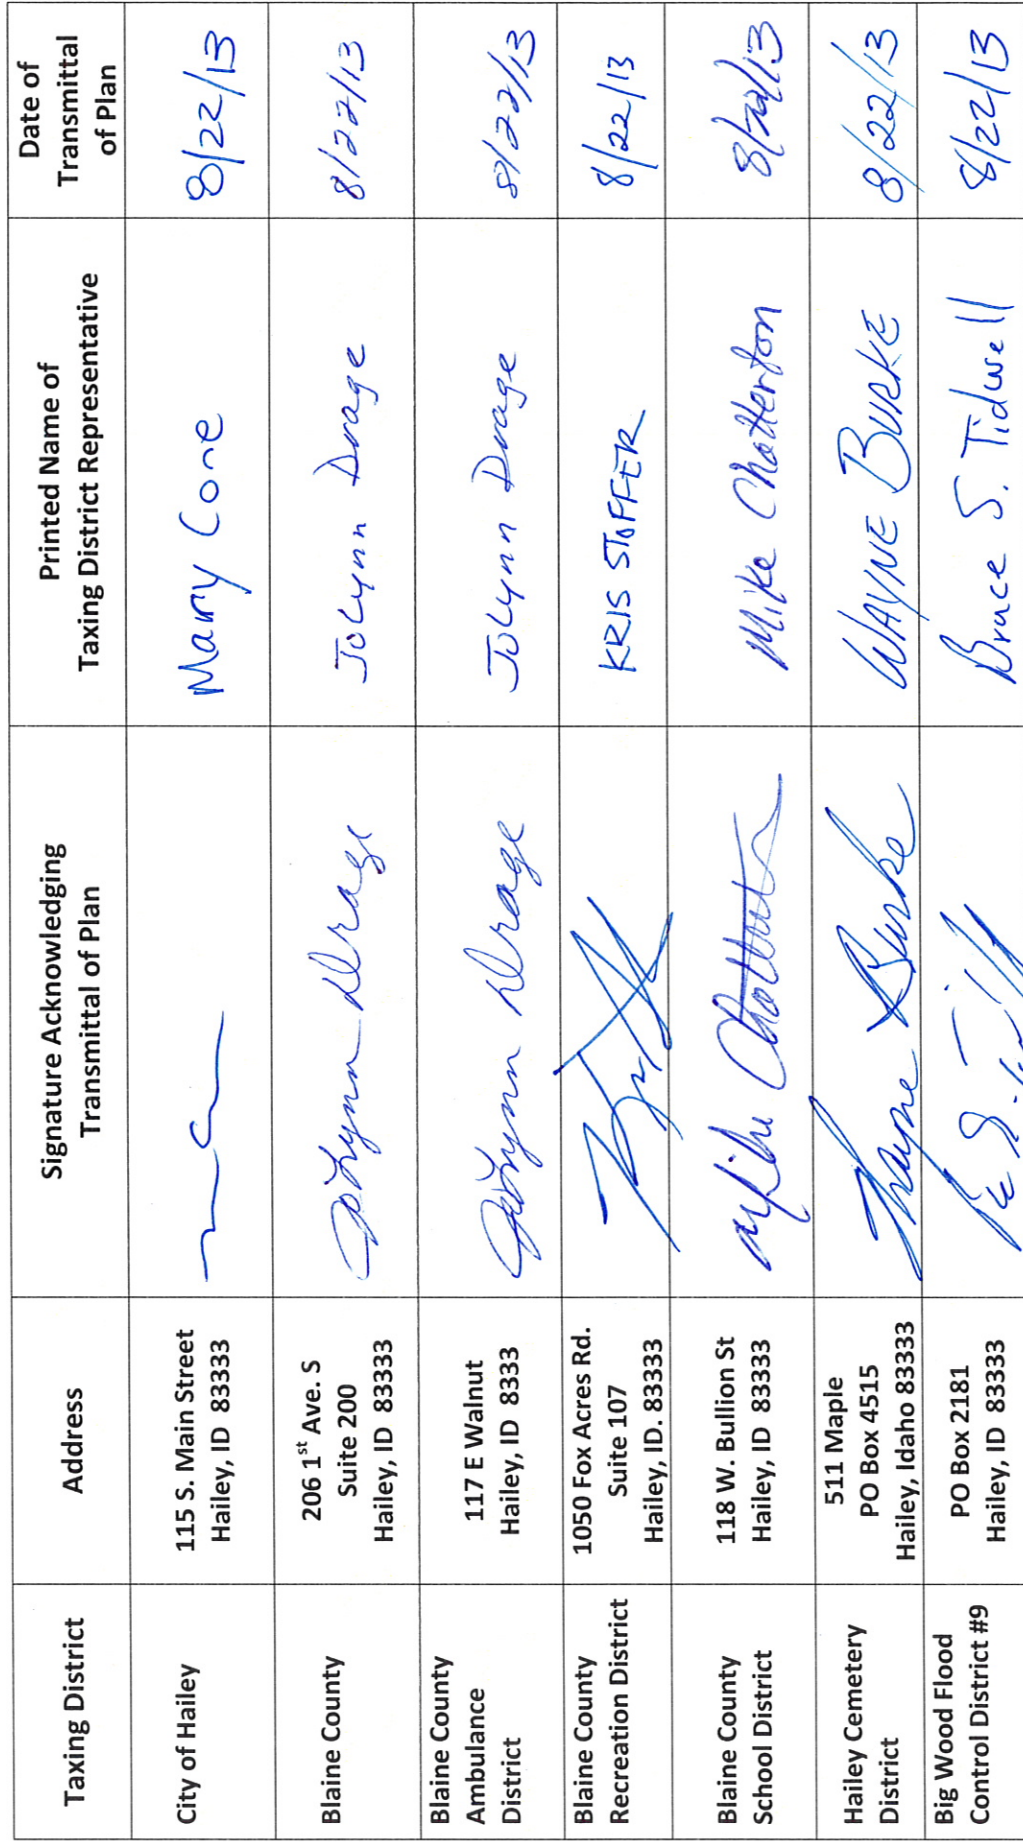 Taxing District
Address
Signature Acknowledging
Transmittal of Plan
Printed Name of
Taxing District Representative
Date of
Transmittal
of Plan
City of Hailey
115 S. Main Street
Hailey, ID 83333
Mary Cone
8/22/13
Blaine County
206 1st Ave. S
Suite 200
Hailey, ID 83333
JoLynn Drage
JoLynn Drage
8/22/13
Blaine County
Ambulance
District
117 E Walnut
Hailey, ID 8333
JoLynn Drage
JoLynn Drage
8/22/13
Blaine County
Recreation District
1050 Fox Acres Rd.
Suite 107
Hailey, ID. 83333
KRIS STOFFER
8/22/13
Blaine County
School District
118 W. Bullion St
Hailey, ID 83333
Mike Chatterton
Mike Chatterton
8/22/13
Hailey Cemetery
District
511 Maple
PO Box 4515
Hailey, Idaho 83333
Wayne Burke
WAYNE BURKE
8/22/13
Big Wood Flood
Control District #9
PO Box 2181
Hailey, ID 83333
Bruce S. Tidwell
8/22/13